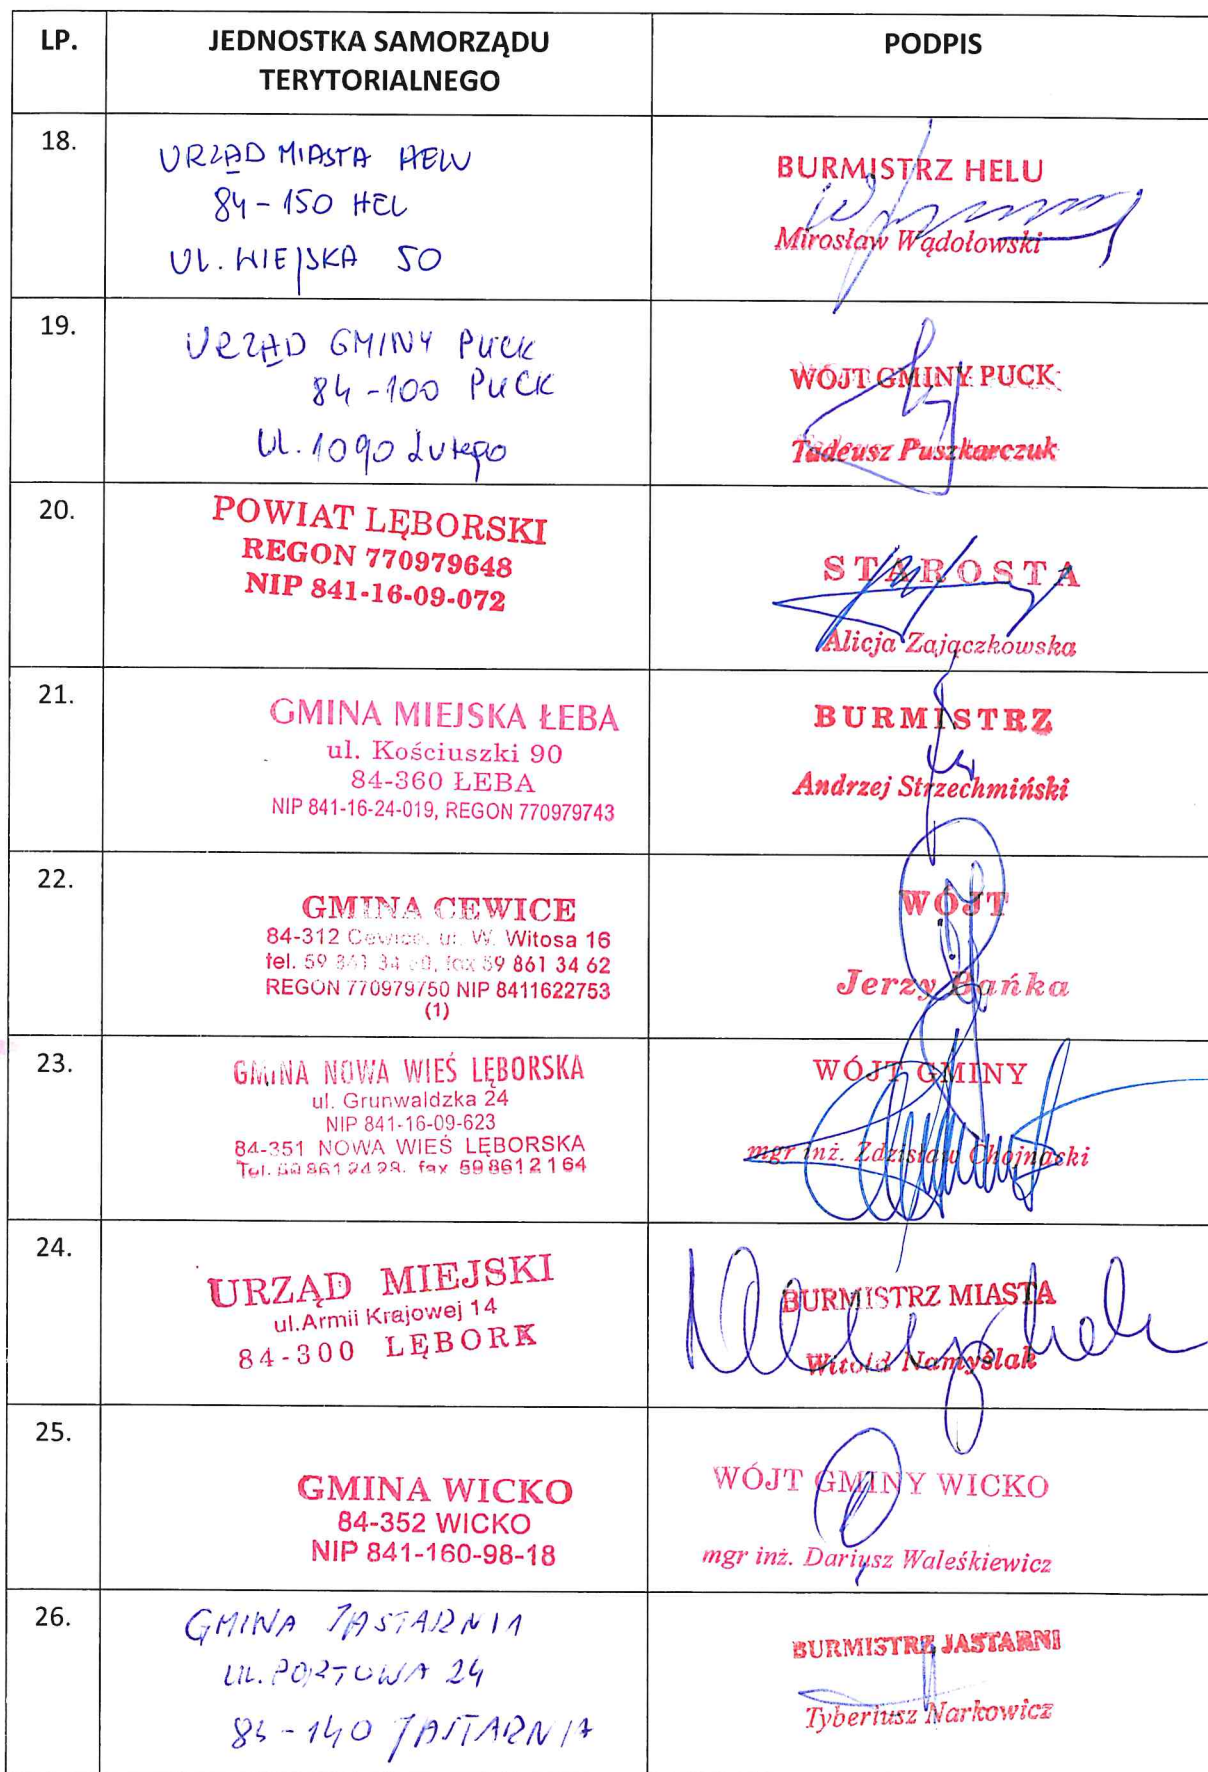 LP.
JEDNOSTKA SAMORZĄDU
TERYTORIALNEGO
PODPIS
18.
URZĄD MIASTA HELU
84-150 HEL
UL. WIEJSKA 50
BURMISTRZ HELU
Mirosław Wądołowski
19.
URZĄD GMINY PUCK
84-100 PUCK
UL. 10go Lutego
WÓJT GMINY PUCK
Tadeusz Puszkarczuk
20.
POWIAT LĘBORSKI
REGON 770979648
NIP 841-16-09-072
STAROSTA
Alicja Zajączkowska
21.
GMINA MIEJSKA ŁEBA
ul. Kościuszki 90
84-360 ŁEBA
NIP 841-16-24-019, REGON 770979743
BURMISTRZ
Andrzej Strzechmiński
22.
GMINA CEWICE
84-312 Cewice, ul. W. Witosa 16
tel. 59 861 34 fax 59 861 34 62
REGON 770979750 NIP 8411622753
(1)
WÓJT
Jerzy Bańka
23.
GMINA NOWA WIEŚ LĘBORSKA
ul. Grunwaldzka 24
NIP 841-16-09-623
84-351 NOWA WIEŚ LĘBORSKA
Tel. 59 8612428, fax 59 8612164
WÓJT GMINY
mgr inż. Zdzisław Chojnacki
24.
URZĄD MIEJSKI
ul.Armii Krajowej 14
84-300 LĘBORK
BURMISTRZ MIASTA
Witold Namyślak
25.
GMINA WICKO
84-352 WICKO
NIP 841-160-98-18
WÓJT GMINY WICKO
mgr inż. Dariusz Waleśkiewicz
26.
GMINA JASTARNIA
UL. PORTOWA 24
84-140 JASTARNIA
BURMISTRZ JASTARNI
Tyberiusz Narkowicz